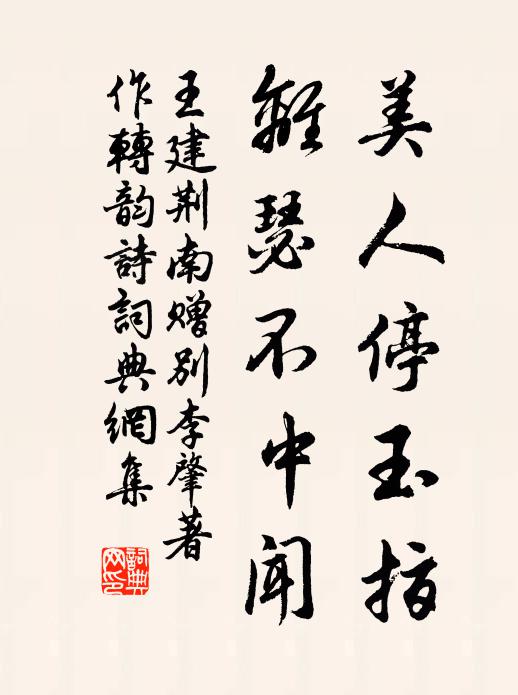 美人停玉指
離瑟不中闻
王建荆南赠别李肇著
作轉韵詩詞典網集
詞典
网印